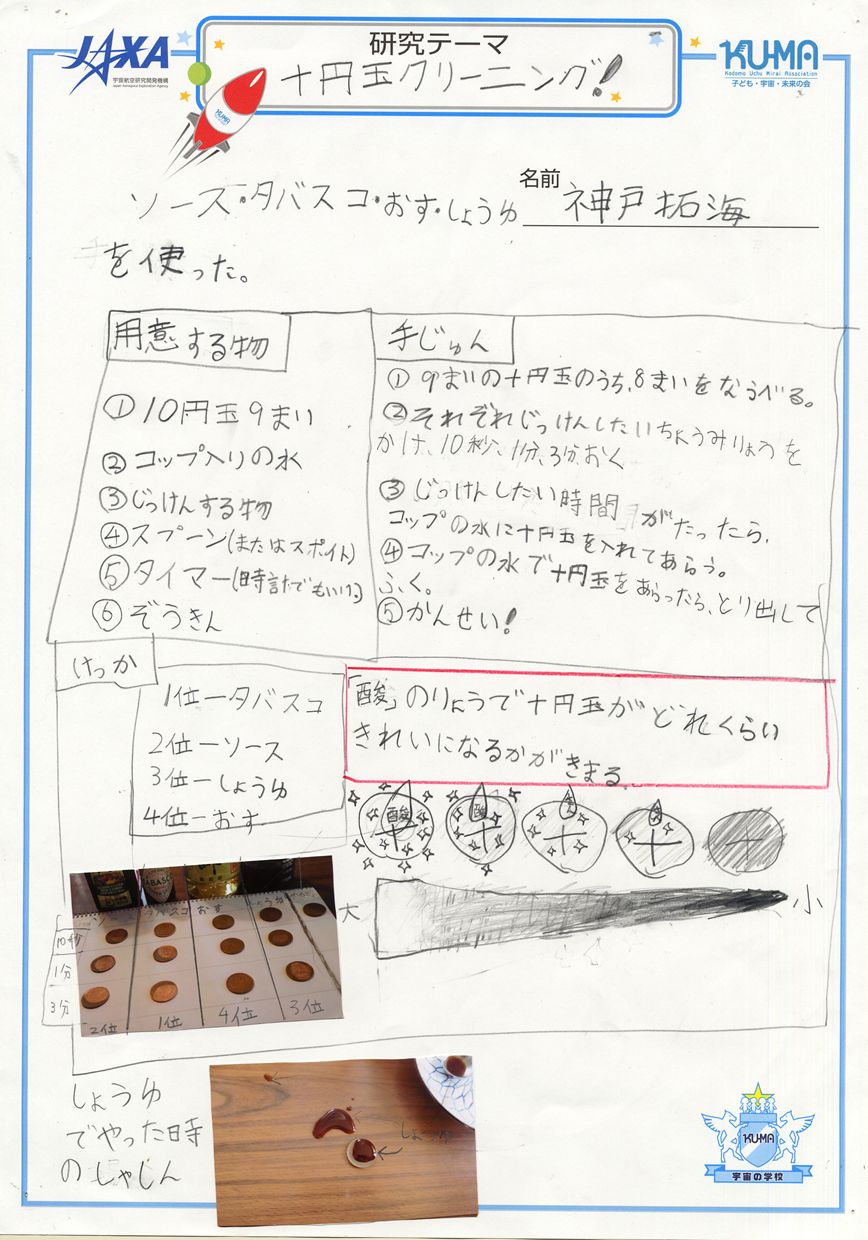 JAXA
宇宙航空研究開発機構
Japan Aerospace Exploration Agency
研究テーマ
十円玉クリーニング!
KU-MA
Kodomo Uchu Mirai Association
子ども・宇宙・未来の会
KU-MA
名前
神戸拓海
ソース・タバスコ・おす・しょうゆ
を使った。
用意する物
①10円玉9まい
②コップ入りの水
③じっけんする物
④スプーン(またはスポイト)
⑤タイマー(時計でもいい。)
⑥ぞうきん
手じゅん
①9まいの十円玉のうち、8まいをならべる。
②それぞれじっけんしたいちょうみりょうを
かけ、10秒、1分、3分おく
③じっけんしたい時間がたったら、
コップの水に十円玉を入れてあらう。
④コップの水で十円玉をあらったら、とり出して
ふく。
⑤かんせい!
けっか
1位ータバスコ
2位ーソース
3位ーしょうゆ
4位ーおす
「酸」のりょうで十円玉がどれくらい
きれいになるかがきまる
酸
十
酸
十
酸
十
酸
十
十
大
小
タバスコ
おす
しょうゆ
10秒
1分
3分
2位
1位
4位
3位
しょうゆ
でやった時
のしゃしん
しょうゆ
KU-MA
宇宙の学校